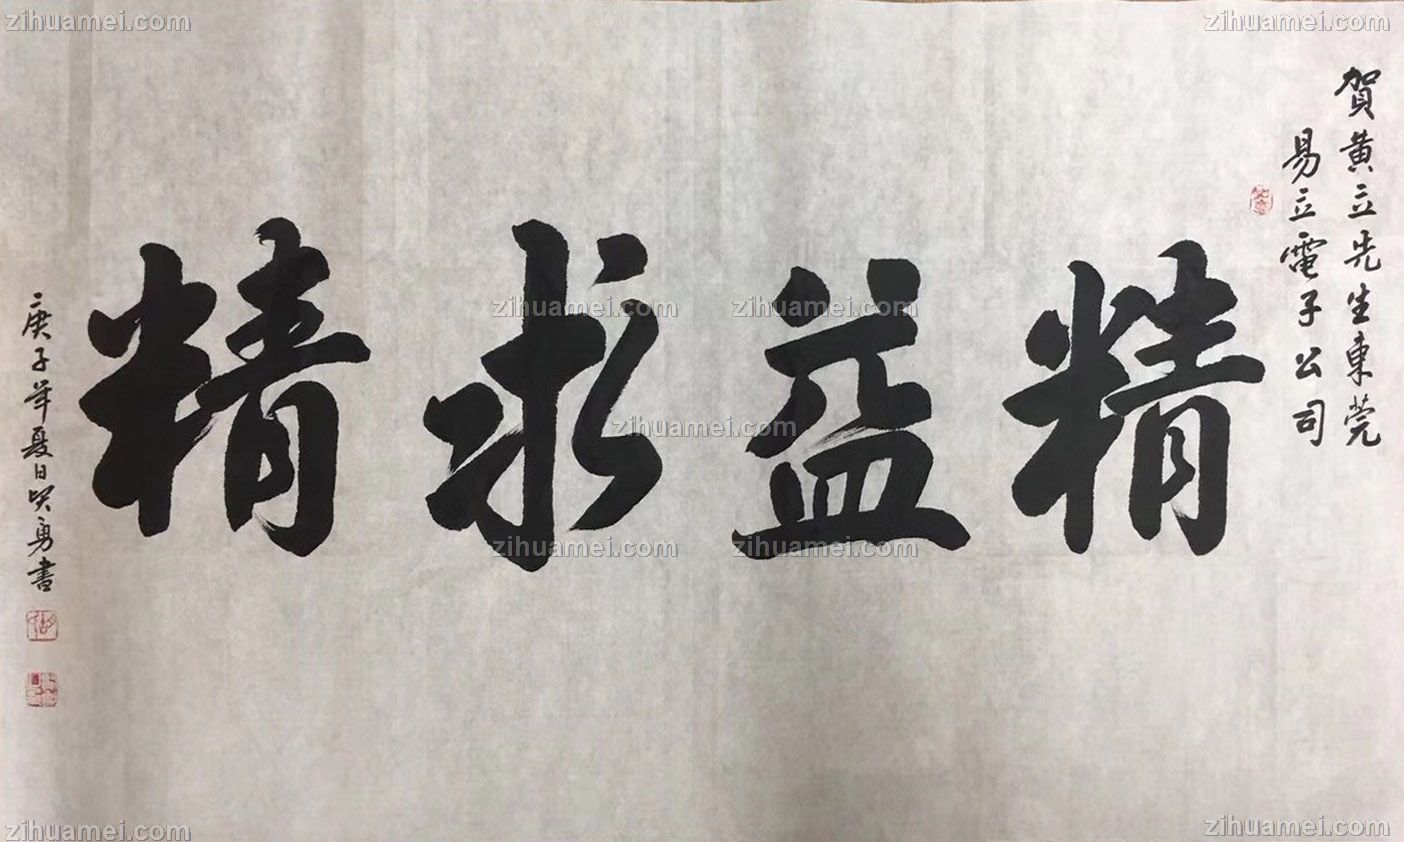 賀黄立先生東莞
易立電子公司
精益求精
庚子年夏日贤勇書
zihuamei.com
zihuamei.com
zihuamei.com
zihuamei.com
zihuamei.com
zihuamei.com
zihuamei.com
zihuamei.com
zihuamei.com